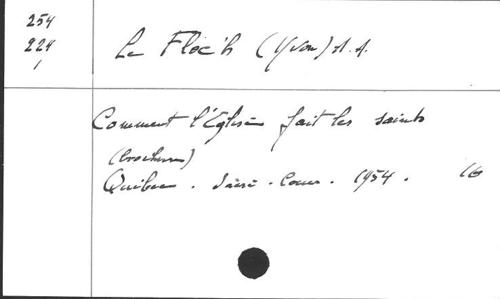 254
224
1
Le Floc'h (Yvon) A.A.
Comment l'Eglise fait les saints
(brochure)
Québec . Sacré - Coeur . 1954 . 16